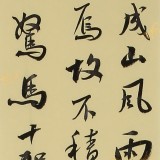 成山風雨
焉故不積
駑馬十駕